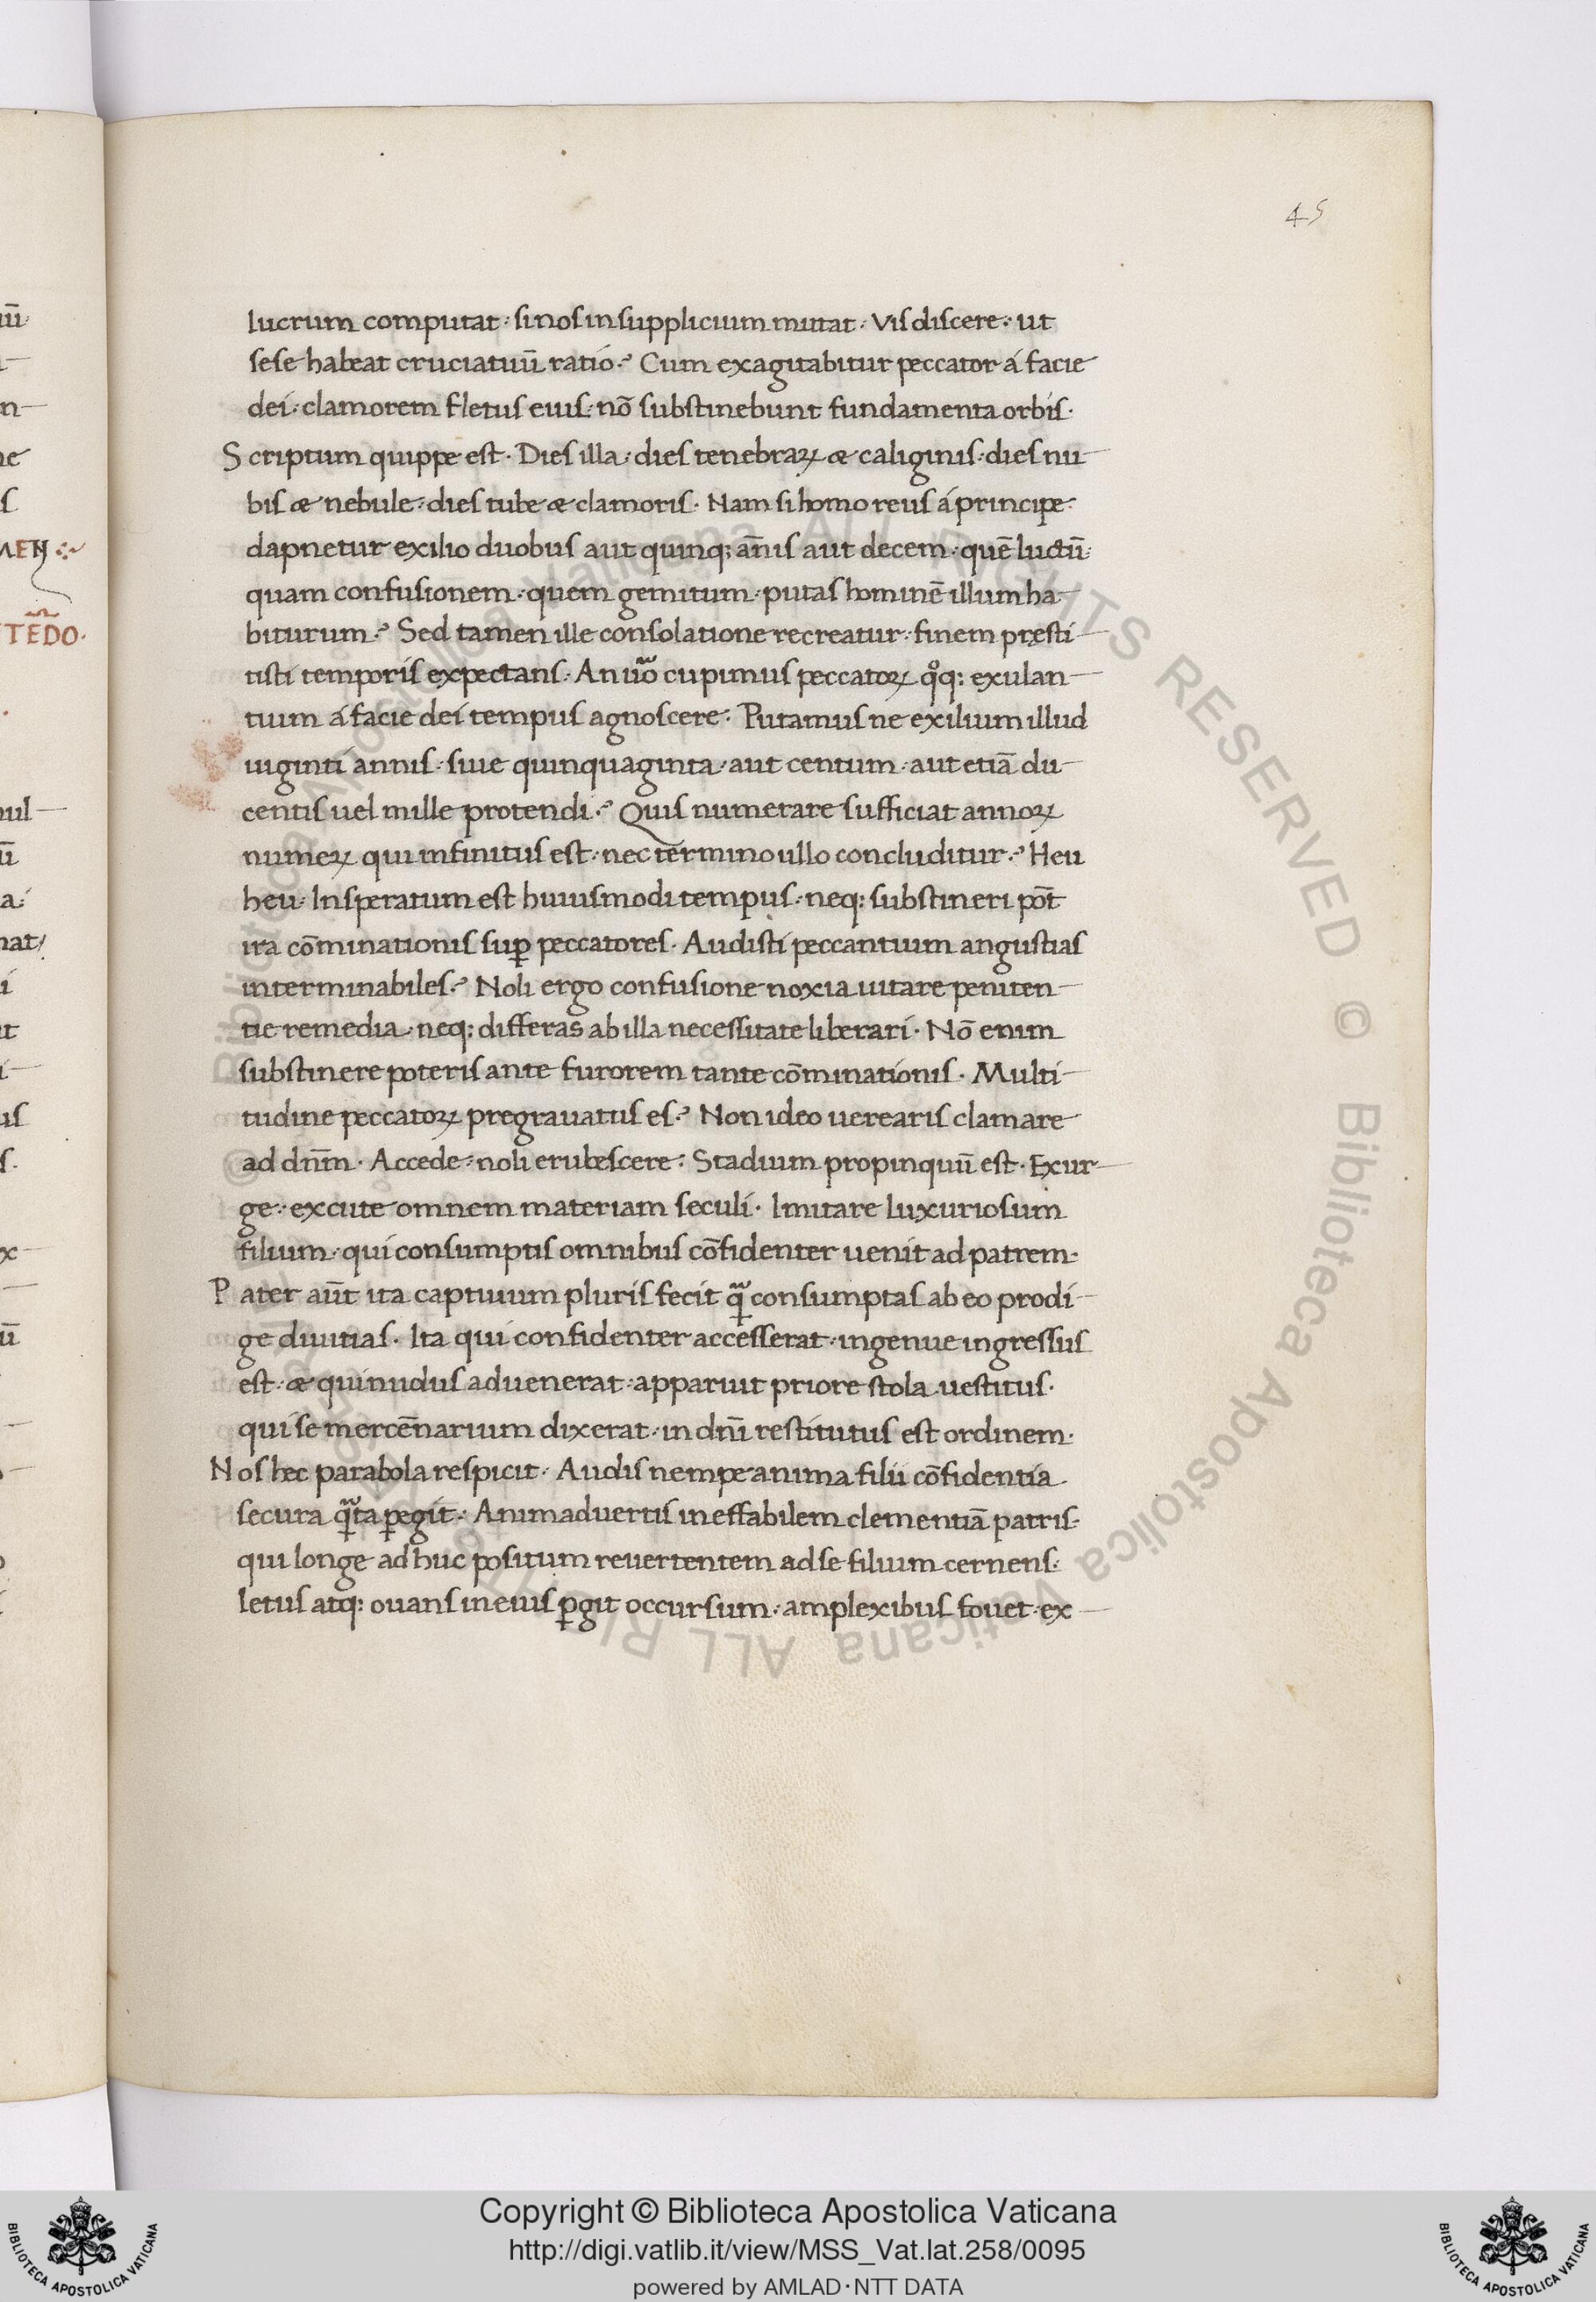 45
lucrum computat: si nos in supplicium mutat: Vis discere: ut
sese habeat cruciatuū ratio? Cum exagitabitur peccator á facie
dei: clamorem fletus eius: nō substinebunt fundamenta orbis.
Scriptum quippe est. Dies illa: dies tenebraꝝ & caliginis: dies nu-
bis & nebule: dies tube & clamoris. Nam si homo reus á principe
dapnetur exilio duobus aut quinq; ān̄is aut decem: quē luctū:
quam confusionem: quem gemitum: putas hominē illum ha-
biturum? Sed tamen ille consolatione recreatur: finem pręsti-
tisti temporis expectans. An uͣo cupimus peccatoꝝ qͦq: exulan-
tium á facie dei tempus agnoscere: Putamus ne exilium illud
uiginti annis: siue quinquaginta: aut centum: aut etiā du-
centis uel mille protendi? Quis numerare sufficiat annoꝝ
numeꝝ qui infinitus est: nec termino ullo concluditur? Heu
heu: Insperatum est huiusmodi tempus: neq: substineri pōt
ira cōminationis suꝑ peccatores. Audisti peccantium angustias
interminabiles? Noli ergo confusione noxia uitare peniten-
tie remedia: neq: differas ab illa necessitate liberari. Nō enim
substinere poteris ante furorem tante cōminationis. Multi-
tudine peccatoꝝ pregrauatus es? Non ideo uerearis clamare
ad dn̄m. Accede: noli erubescere: Stadium propinquū est. Exur-
ge: excute omnem materiam seculi. Imitare luxuriosum
filium: qui consumptis omnibus cōfidenter uenit ad patrem.
Pater aūt ita captiuum pluris fecit qͣ consumptas ab eo prodi-
ge diuitias. Ita qui confidenter accesserat: ingenue ingressus
est: & qui nudus aduenerat: apparuit priore stola uestitus.
qui se mercēnarium dixerat: in dn̄i restitutus est ordinem.
Nos hec parabola respicit. Audis nempe anima filii cōfidentia
secura qͣta ꝑegit: Animaduertis ineffabilem clementiā patris.
qui longe adhuc positum reuertentem ad se filium cernens:
letus atq: ouans in eius ꝑgit occursum: amplexibus fouet: ex-
© Biblioteca Apostolica Vaticana ALL RIGHTS RESERVED © Biblioteca Apostolica Vaticana ALL RIGHTS RESERVED
Copyright © Biblioteca Apostolica Vaticana
http://digi.vatlib.it/view/MSS_Vat.lat.258/0095
powered by AMLAD·NTT DATA
BIBLIOTECA APOSTOLICA VATICANA
BIBLIOTECA APOSTOLICA VATICANA